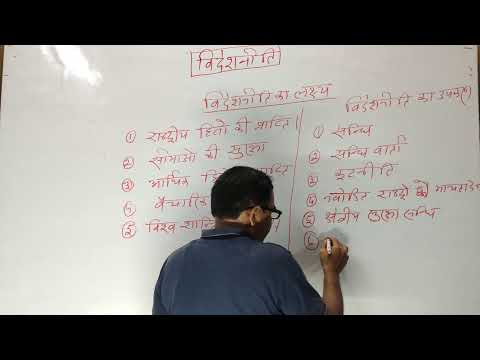 विदेशनीति
विदेशनीति का लक्ष्य
① राष्ट्रीय हितों की प्राप्ति।
② सीमाओं की सुरक्षा
③ आर्थिक
④ वैचारिक
⑤ विश्व शान्ति
विदेशनीति का उपकरण
① सन्धि
② सन्धि वार्ता
③ कूटनीति
④ नवोदित राष्ट्रों को
⑤ क्षेत्रीय सुरक्षा सन्धि
⑥